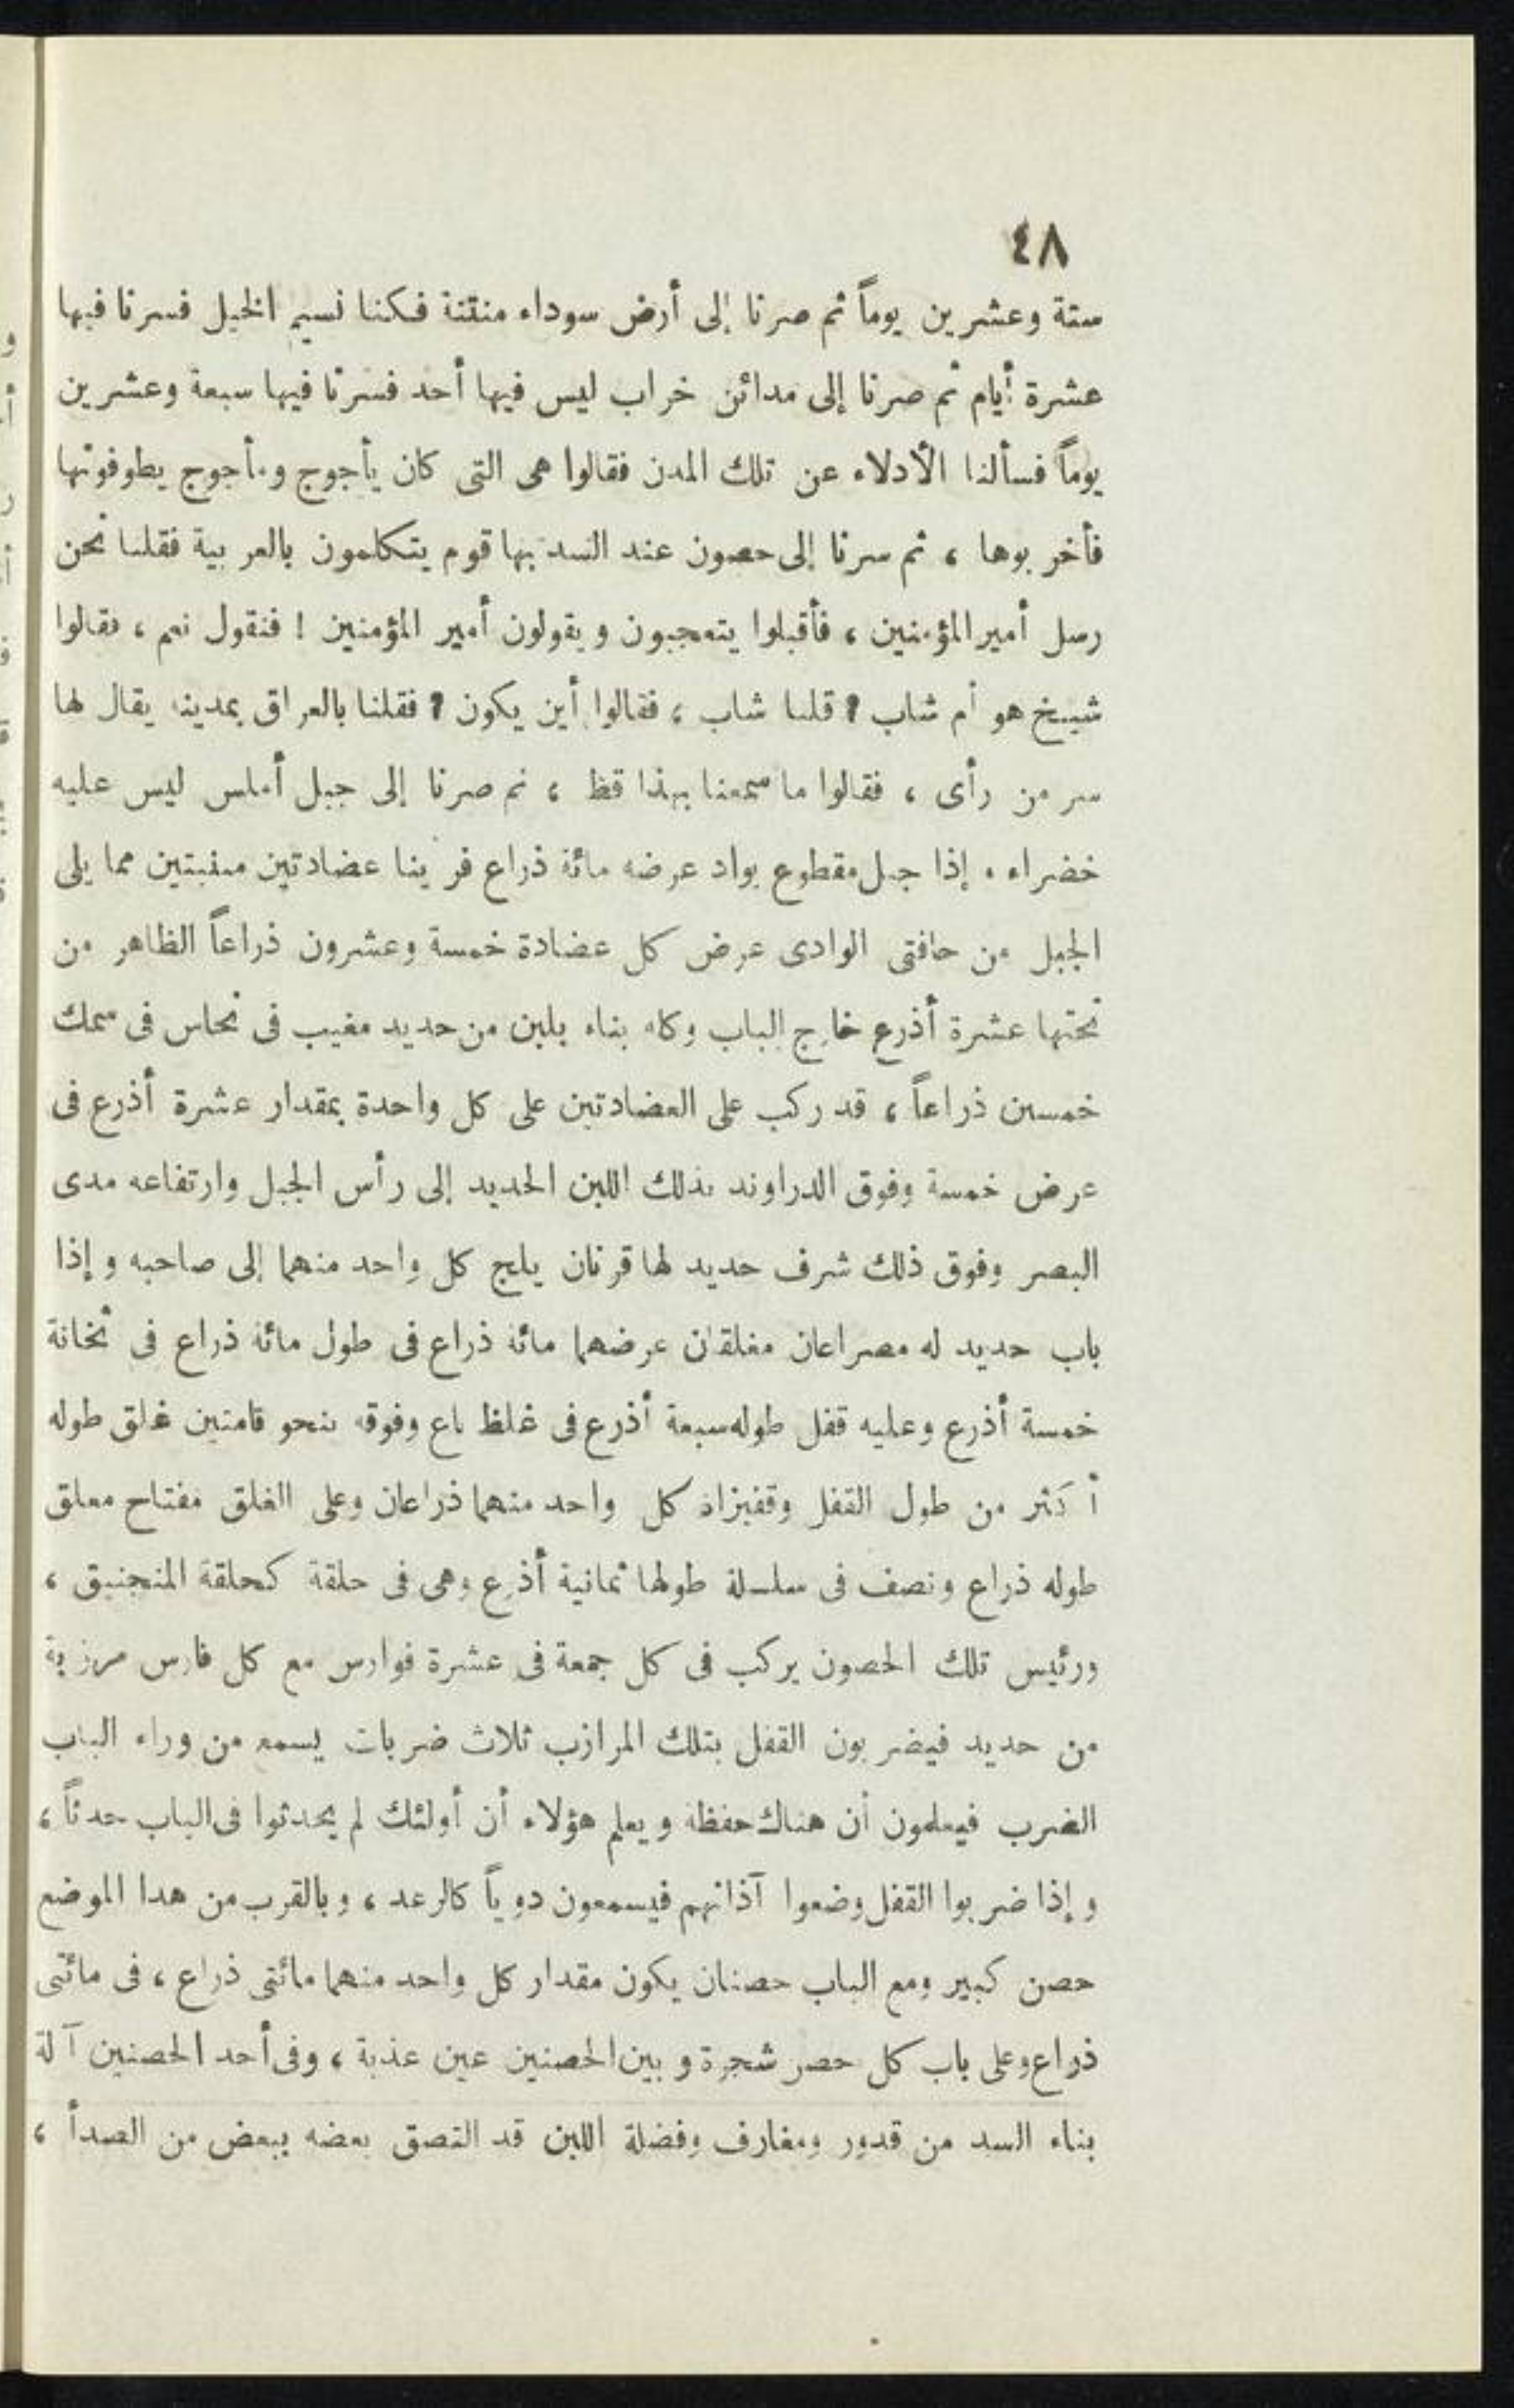 ٤٨
ستة وعشرين يوماً ثم صرنا إلى أرض سوداء منتنة فكنا نسيم الخيل فسرنا فيها
عشرة أيام ثم صرنا إلى مدائن خراب ليس فيها أحد فسرنا فيها سبعة وعشرين
يوماً فسألنا الأدلاء عن تلك المدن فقالوا هى التى كان يأجوج ومأجوج يطوفونها
فأخربوها ، ثم سرنا إلى حصون عند السد بها قوم يتكلمون بالعربية فقلنا نحن
رسل أمير المؤمنين ، فأقبلوا يتعجبون ويقولون أمير المؤمنين ! فنقول نعم ، فقالوا
شيخ هو أم شاب ؟ قلنا شاب ، فقالوا أين يكون ؟ فقلنا بالعراق بمدينة يقال لها
سر من رأى ، فقالوا ما سمعنا بهذا قط ، ثم صرنا إلى جبل أملس ليس عليه
خضراء . إذا جبل مقطوع بواد عرضه مائة ذراع فرينا عضادتين مما يلى
الجبل من حافتى الوادى عرض كل عضادة خمسة وعشرون ذراعاً الظاهر من
تحتها عشرة أذرع خارج الباب وكله بناء بلبن من حديد مغيب فى نحاس فى سمك
خمسين ذراعاً ، قد ركب على العضادتين على كل واحدة بمقدار عشرة أذرع فى
عرض خمسة وفوق الدراوند بذلك اللبن الحديد إلى رأس الجبل وارتفاعه مدى
البصر وفوق ذلك شرف حديد لها قرنان يلج كل واحد منهما إلى صاحبه وإذا
باب حديد له مصراعان مغلقان عرضهما مائة ذراع فى طول مائة ذراع فى ثخانة
خمسة أذرع وعليه قفل طوله سبعة أذرع فى غلظ باع وفوقه بنحو قامتين غلق طوله
أكثر من طول القفل وقفيزاه كل واحد منهما ذراعان وعلى الغلق مفتاح معلق
طوله ذراع ونصف فى سلسلة طولها ثمانية أذرع وهى فى حلقة كحلقة المنجنيق ،
ورئيس تلك الحصون يركب فى كل جمعة فى عشرة فوارس مع كل فارس مرزبة
من حديد فيضربون القفل بتلك المرازب ثلاث ضربات يسمع من وراء الباب
الضرب فيعلمون أن هناك حفظة ويعلم هؤلاء أن أولئك لم يحدثوا فى الباب حدثاً ،
وإذا ضربوا القفل وضعوا آذانهم فيسمعون دوياً كالرعد ، وبالقرب من هدا الموضع
حصن كبير ومع الباب حصنان يكون مقدار كل واحد منهما مائتى ذراع ، فى مائتى
ذراع وعلى باب كل حصر شجرة وبين الحصنين عين عذبة ، وفى أحد الحصنين آلة
بناء السد من قدور ومغارف وفضلة اللبن قد التصق بعضه ببعض من الصدأ ،